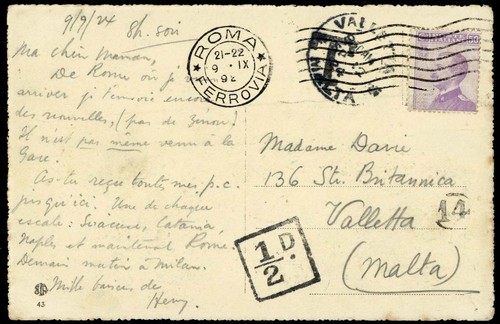 9/9/24 8h. soir
Ma chère Maman,
De Rome où je
arriver je t'envoie encore
des nouvelles, (pas de
Il n'est pas même venu à la
Gare!
As-tu reçu toutes mes p.c.
jusqu'ici. Une de chaque
escale: Siracuse, Catania,
Naples et maintenant Rome
Demain matin à Milan.
Mille baisers de
Henry.
43
ROMA
21-22
9 IX
92
FERROVIA
VALLETTA
T
MALTA
Madame Davie
136 Str. Britannica
Valletta
(Malta)
14
1/2 D.